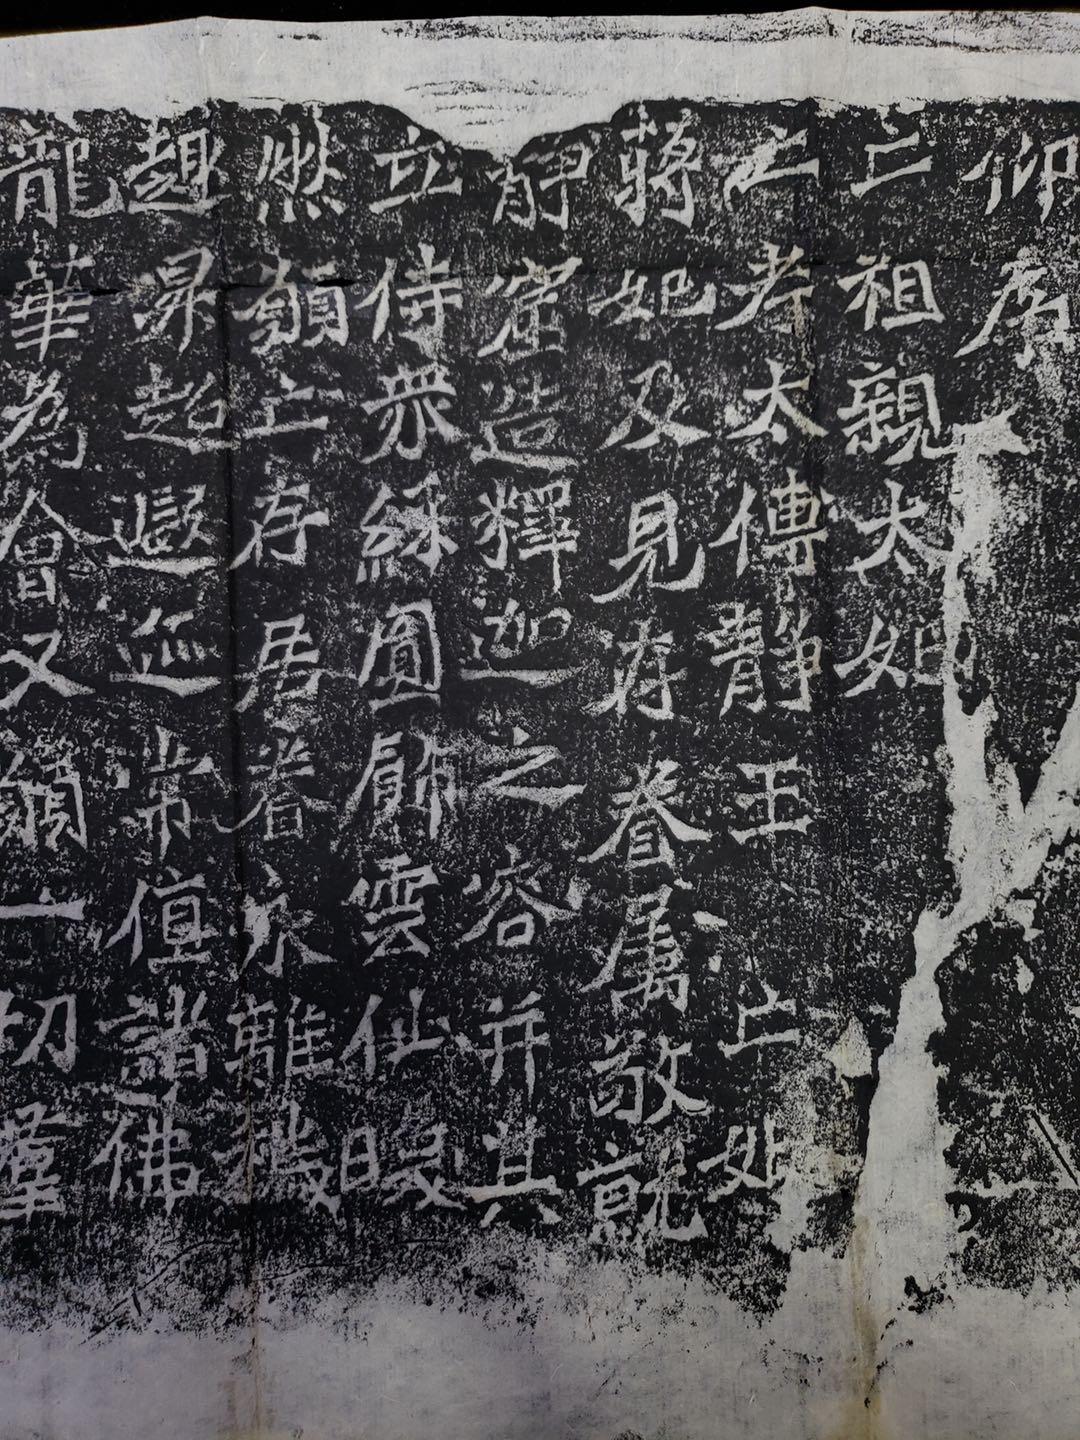 仰為
亡祖親太妃
亡考太傅靜王亡妣
蔣妃及見存眷屬敬就
靜窟造釋迦之容并其
立侍眾綵圓飾雲仙
然願亡存居眷永離穢
趣昇超遐迹常值諸佛
龍華為會又願一切羣